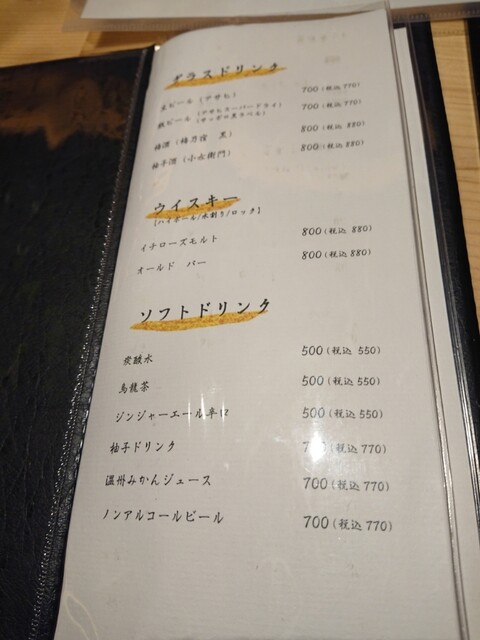 グラスドリンク
生ビール (アサヒ) 700 (税込 770)
瓶ビール (アサヒスーパードライ) (サッポロ黒ラベル) 700 (税込 770)
梅酒 (梅乃宿 黒) 800 (税込 880)
柚子酒 (小左衛門) 800 (税込 880)
ウイスキー
【ハイボール/水割り/ロック】
イチローズモルト 800 (税込 880)
オールド パー 800 (税込 880)
ソフトドリンク
炭酸水 500 (税込 550)
烏龍茶 500 (税込 550)
ジンジャーエール辛口 500 (税込 550)
柚子ドリンク 700 (税込 770)
温州みかんジュース 700 (税込 770)
ノンアルコールビール 700 (税込 770)